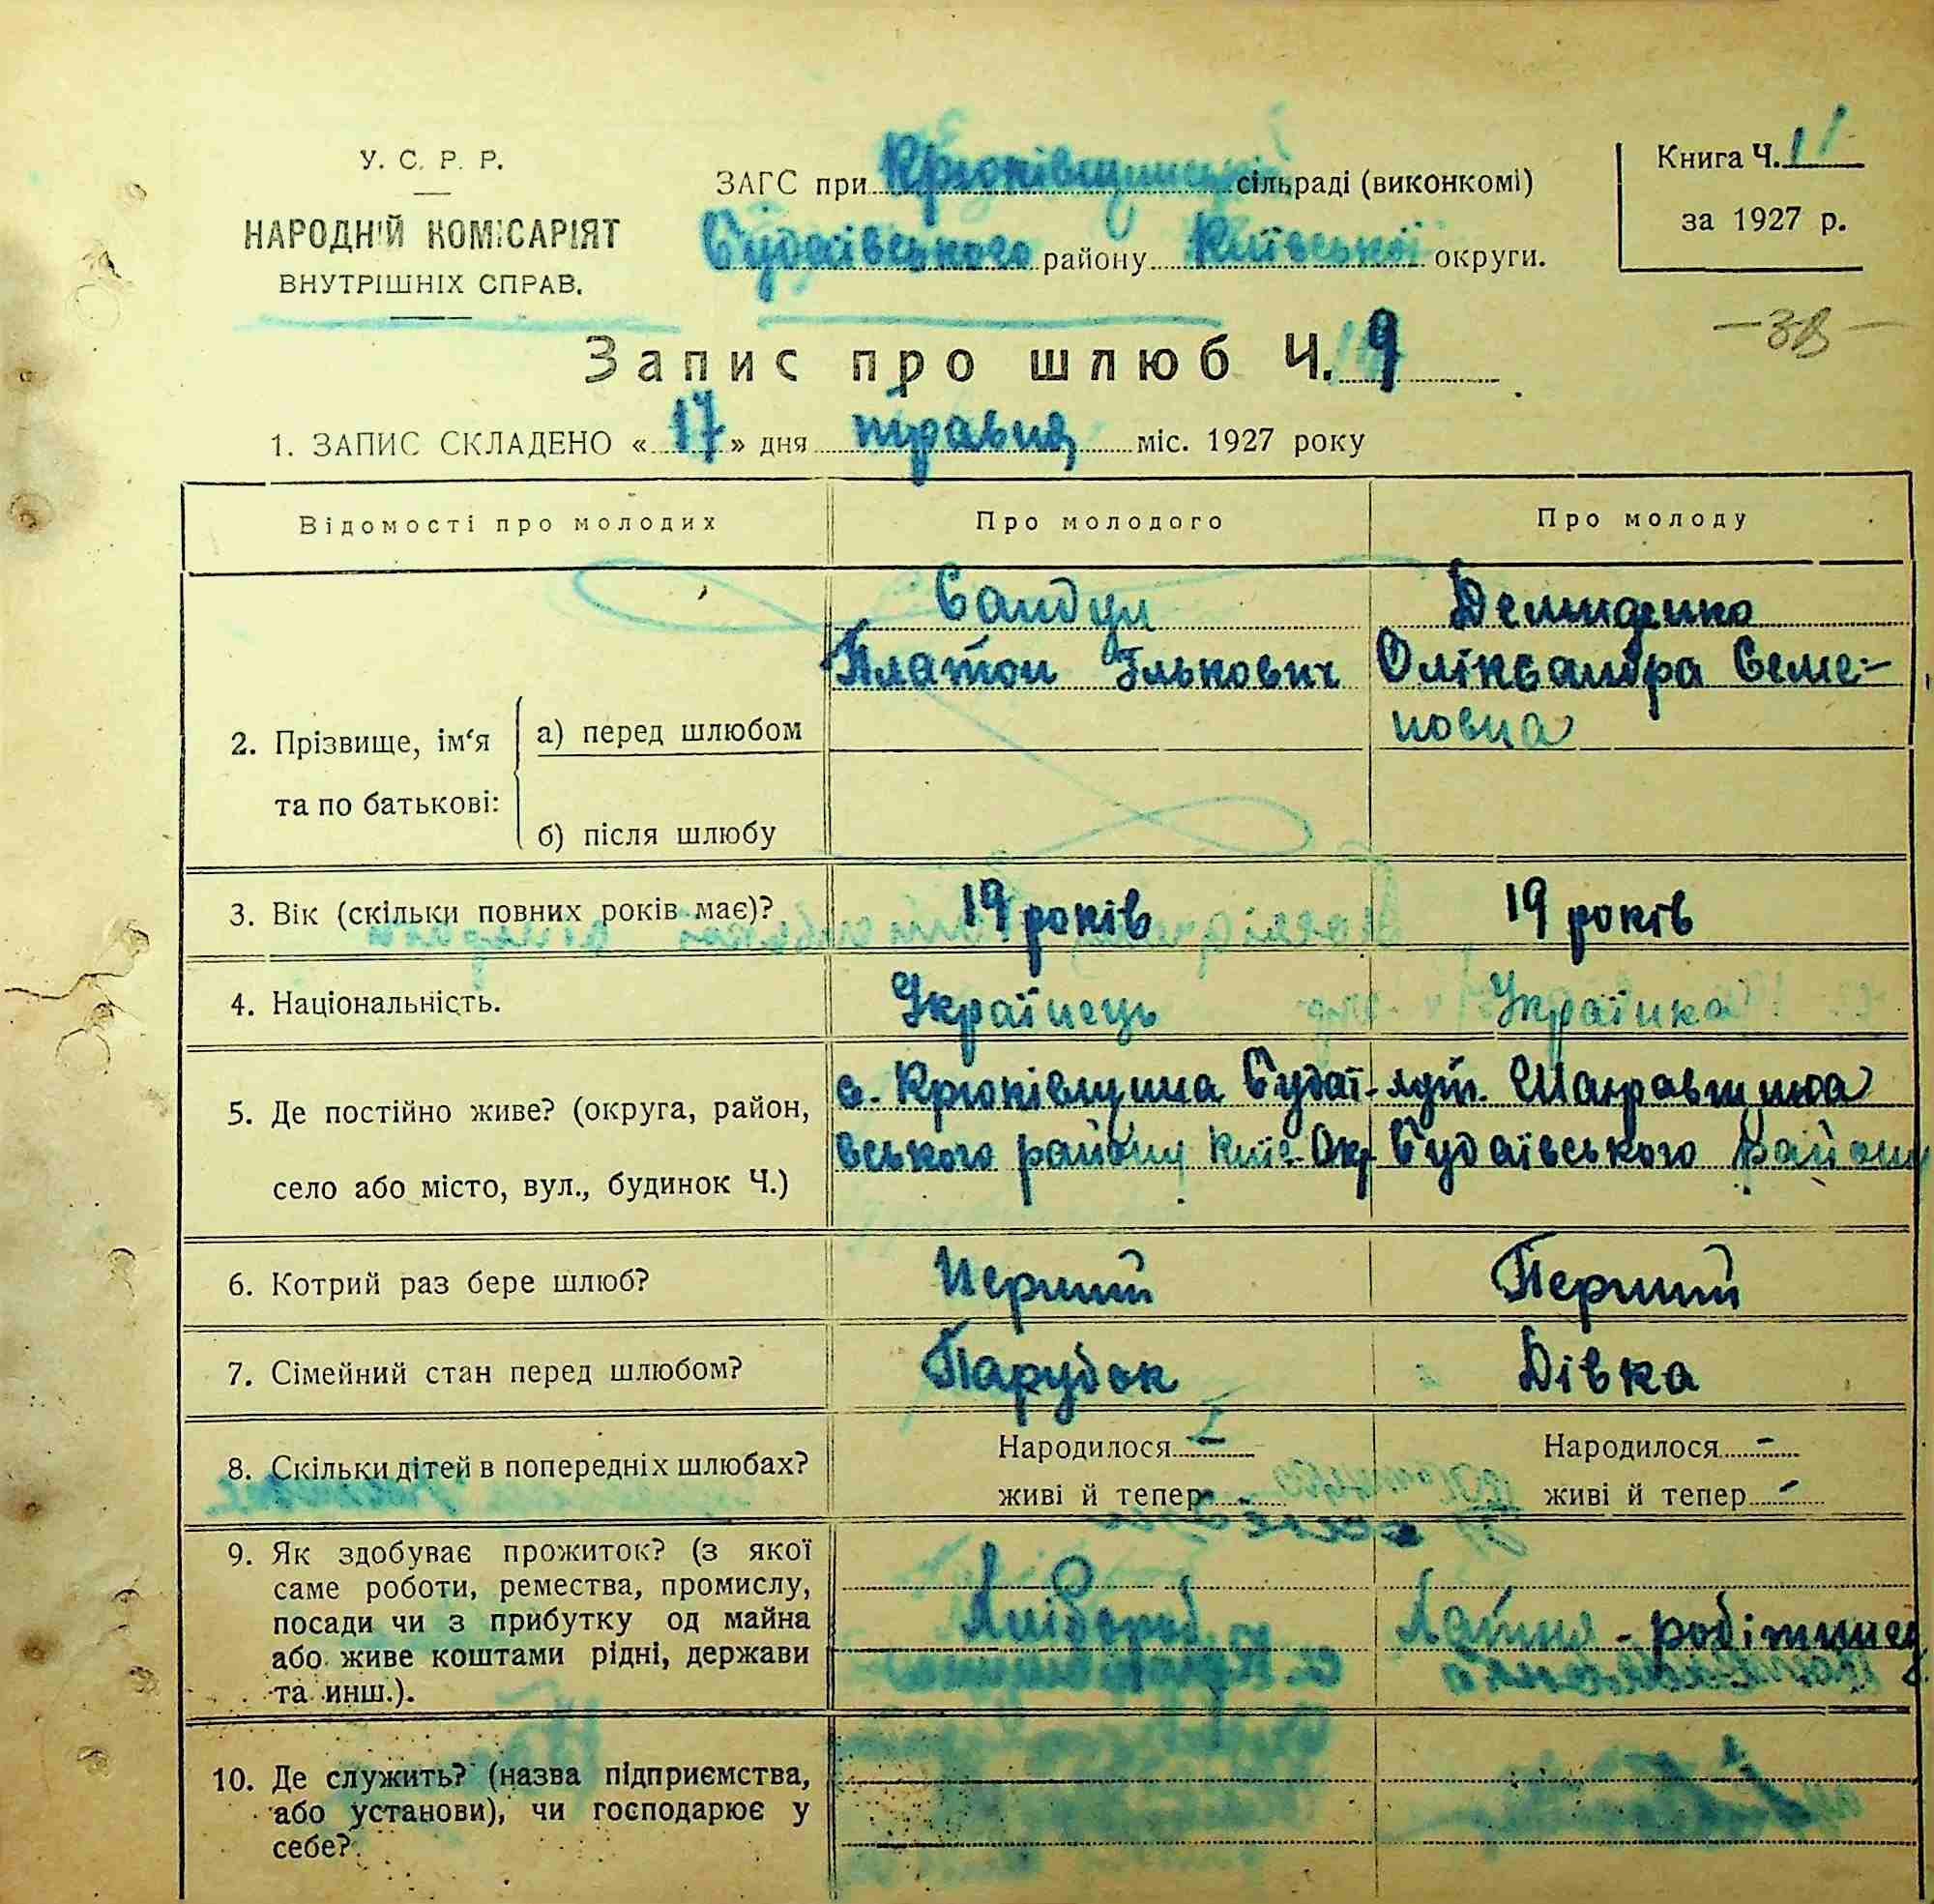 У. С. Р. Р.
НАРОДНІЙ КОМІСАРІЯТ
ВНУТРІШНІХ СПРАВ.
ЗАГС при Крюківщинській сільраді (виконкомі)
Будаївського району Київської округи.
Книга Ч. 1
за 1927 р.
Запис про шлюб Ч. 9
1. ЗАПИС СКЛАДЕНО « 17 » дня травня міс. 1927 року
Відомості про молодих
Про молодого
Про молоду
2. Прізвище, ім‘я
та по батькові:
а) перед шлюбом
б) після шлюбу
Сандул
Платон Ількович
Демиденко
Оліксандра Семе-
новна
3. Вік (скільки повних років має)?
19 років
19 років
4. Національність.
Українець
Українка
5. Де постійно живе? (округа, район,
село або місто, вул., будинок Ч.)
с. Крюківщина Будаї-
вського району Київ. Окр
Будаївського району
6. Котрий раз бере шлюб?
Перший
Перший
7. Сімейний стан перед шлюбом?
Парубок
Дівка
8. Скільки дітей в попередніх шлюбах?
Народилося -
живі й тепер -
Народилося -
живі й тепер -
9. Як здобуває прожиток? (з якої
саме роботи, ремества, промислу,
посади чи з прибутку од майна
або живе коштами рідні, держави
та инш.).
Хлібороб
10. Де служить? (назва підприємства,
або установи), чи господарює у
себе?